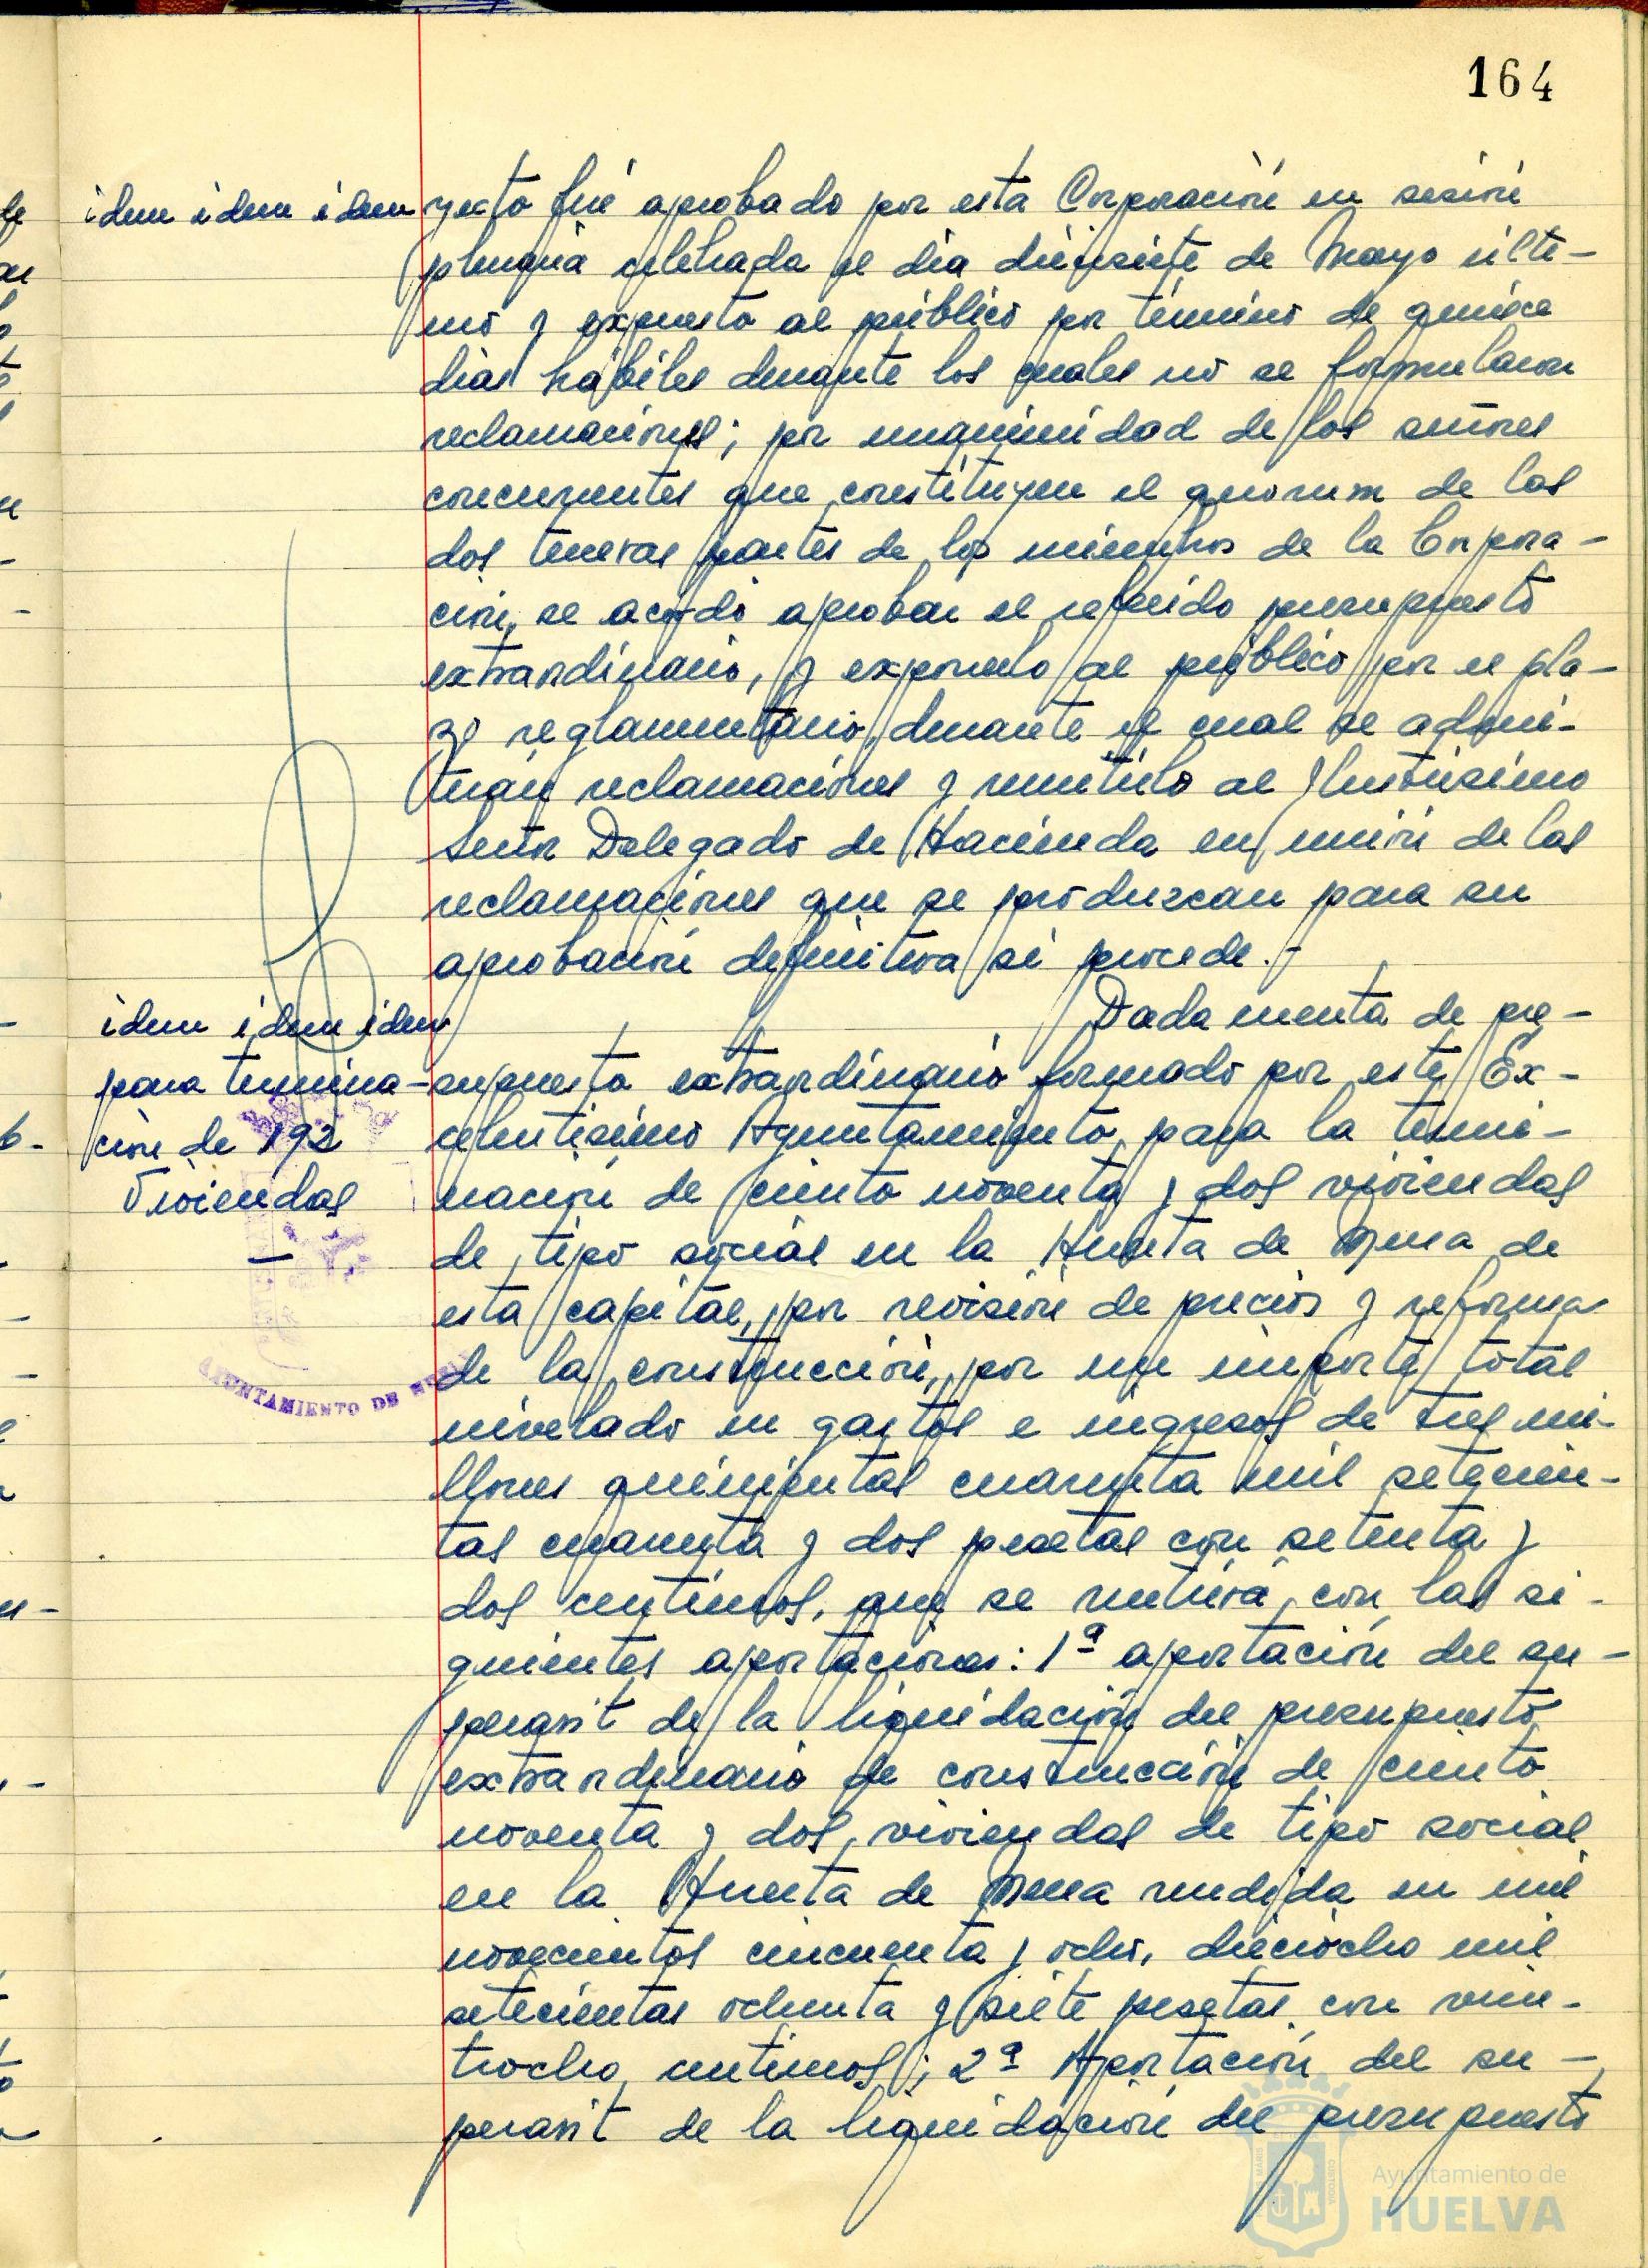 164
idem idem idem
yecto fué aprobado por esta Corporación en sesión
plenaria celebrada el dia diecisiete de Mayo últi-
mo y expuesto al público por término de quince
dias hábiles durante los cuales no se formularon
reclamaciones; por unanimidad de los señores
concurrentes que constituyen el quorum de las
dos terceras partes de los miembros de la Corpora-
ción, se acordó aprobar el referido presupuesto
extraordinario, y exponerlo al público por el pla-
zo reglamentario, durante el cual se admi-
tirán reclamaciones y remitirlo al Ilustrisimo
Señor Delegado de Hacienda en unión de las
reclamaciones que se produzcan para su
aprobación definitiva si procede.-
idem idem idem
para termina-
ción de 192
Viviendas
Dada cuenta de pre-
supuesto extraordinario formado por este Ex-
celentisimo Ayuntamiento, para la termi-
nación de ciento noventa y dos viviendas
de tipo social en la Huerta de Mena de
esta capital, por revisión de precios y reforma
de la construcción, por un importe total
nivelado en gastos e ingresos de tres mi-
llones quinientas cuarenta mil setecien-
tas cuarenta y dos pesetas con setenta y
dos centimos, que se nutrirá, con las si-
guientes aportaciones: 1ª aportación del su-
peravit de la liquidación del presupuesto
extraordinario de construcción de ciento
noventa y dos, viviendas de tipo social
en la Huerta de Mena rendida en mil
novecientos cincuenta y ocho, dieciocho mil
setecientas ochenta y siete pesetas con vein-
tiocho centimos; 2ª Aportación del su-
peravit de la liquidación del presupuesto
AYUNTAMIENTO DE
Ayuntamiento de
HUELVA